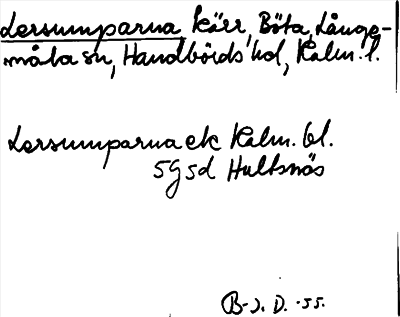 Lersumparna kärr, Böta, Långe-
måla sn, Handbörds hd, Kalm. l.
Lersumparna ek Kalm. bl.
5G5d Hultsnäs
B-J. D. -55.